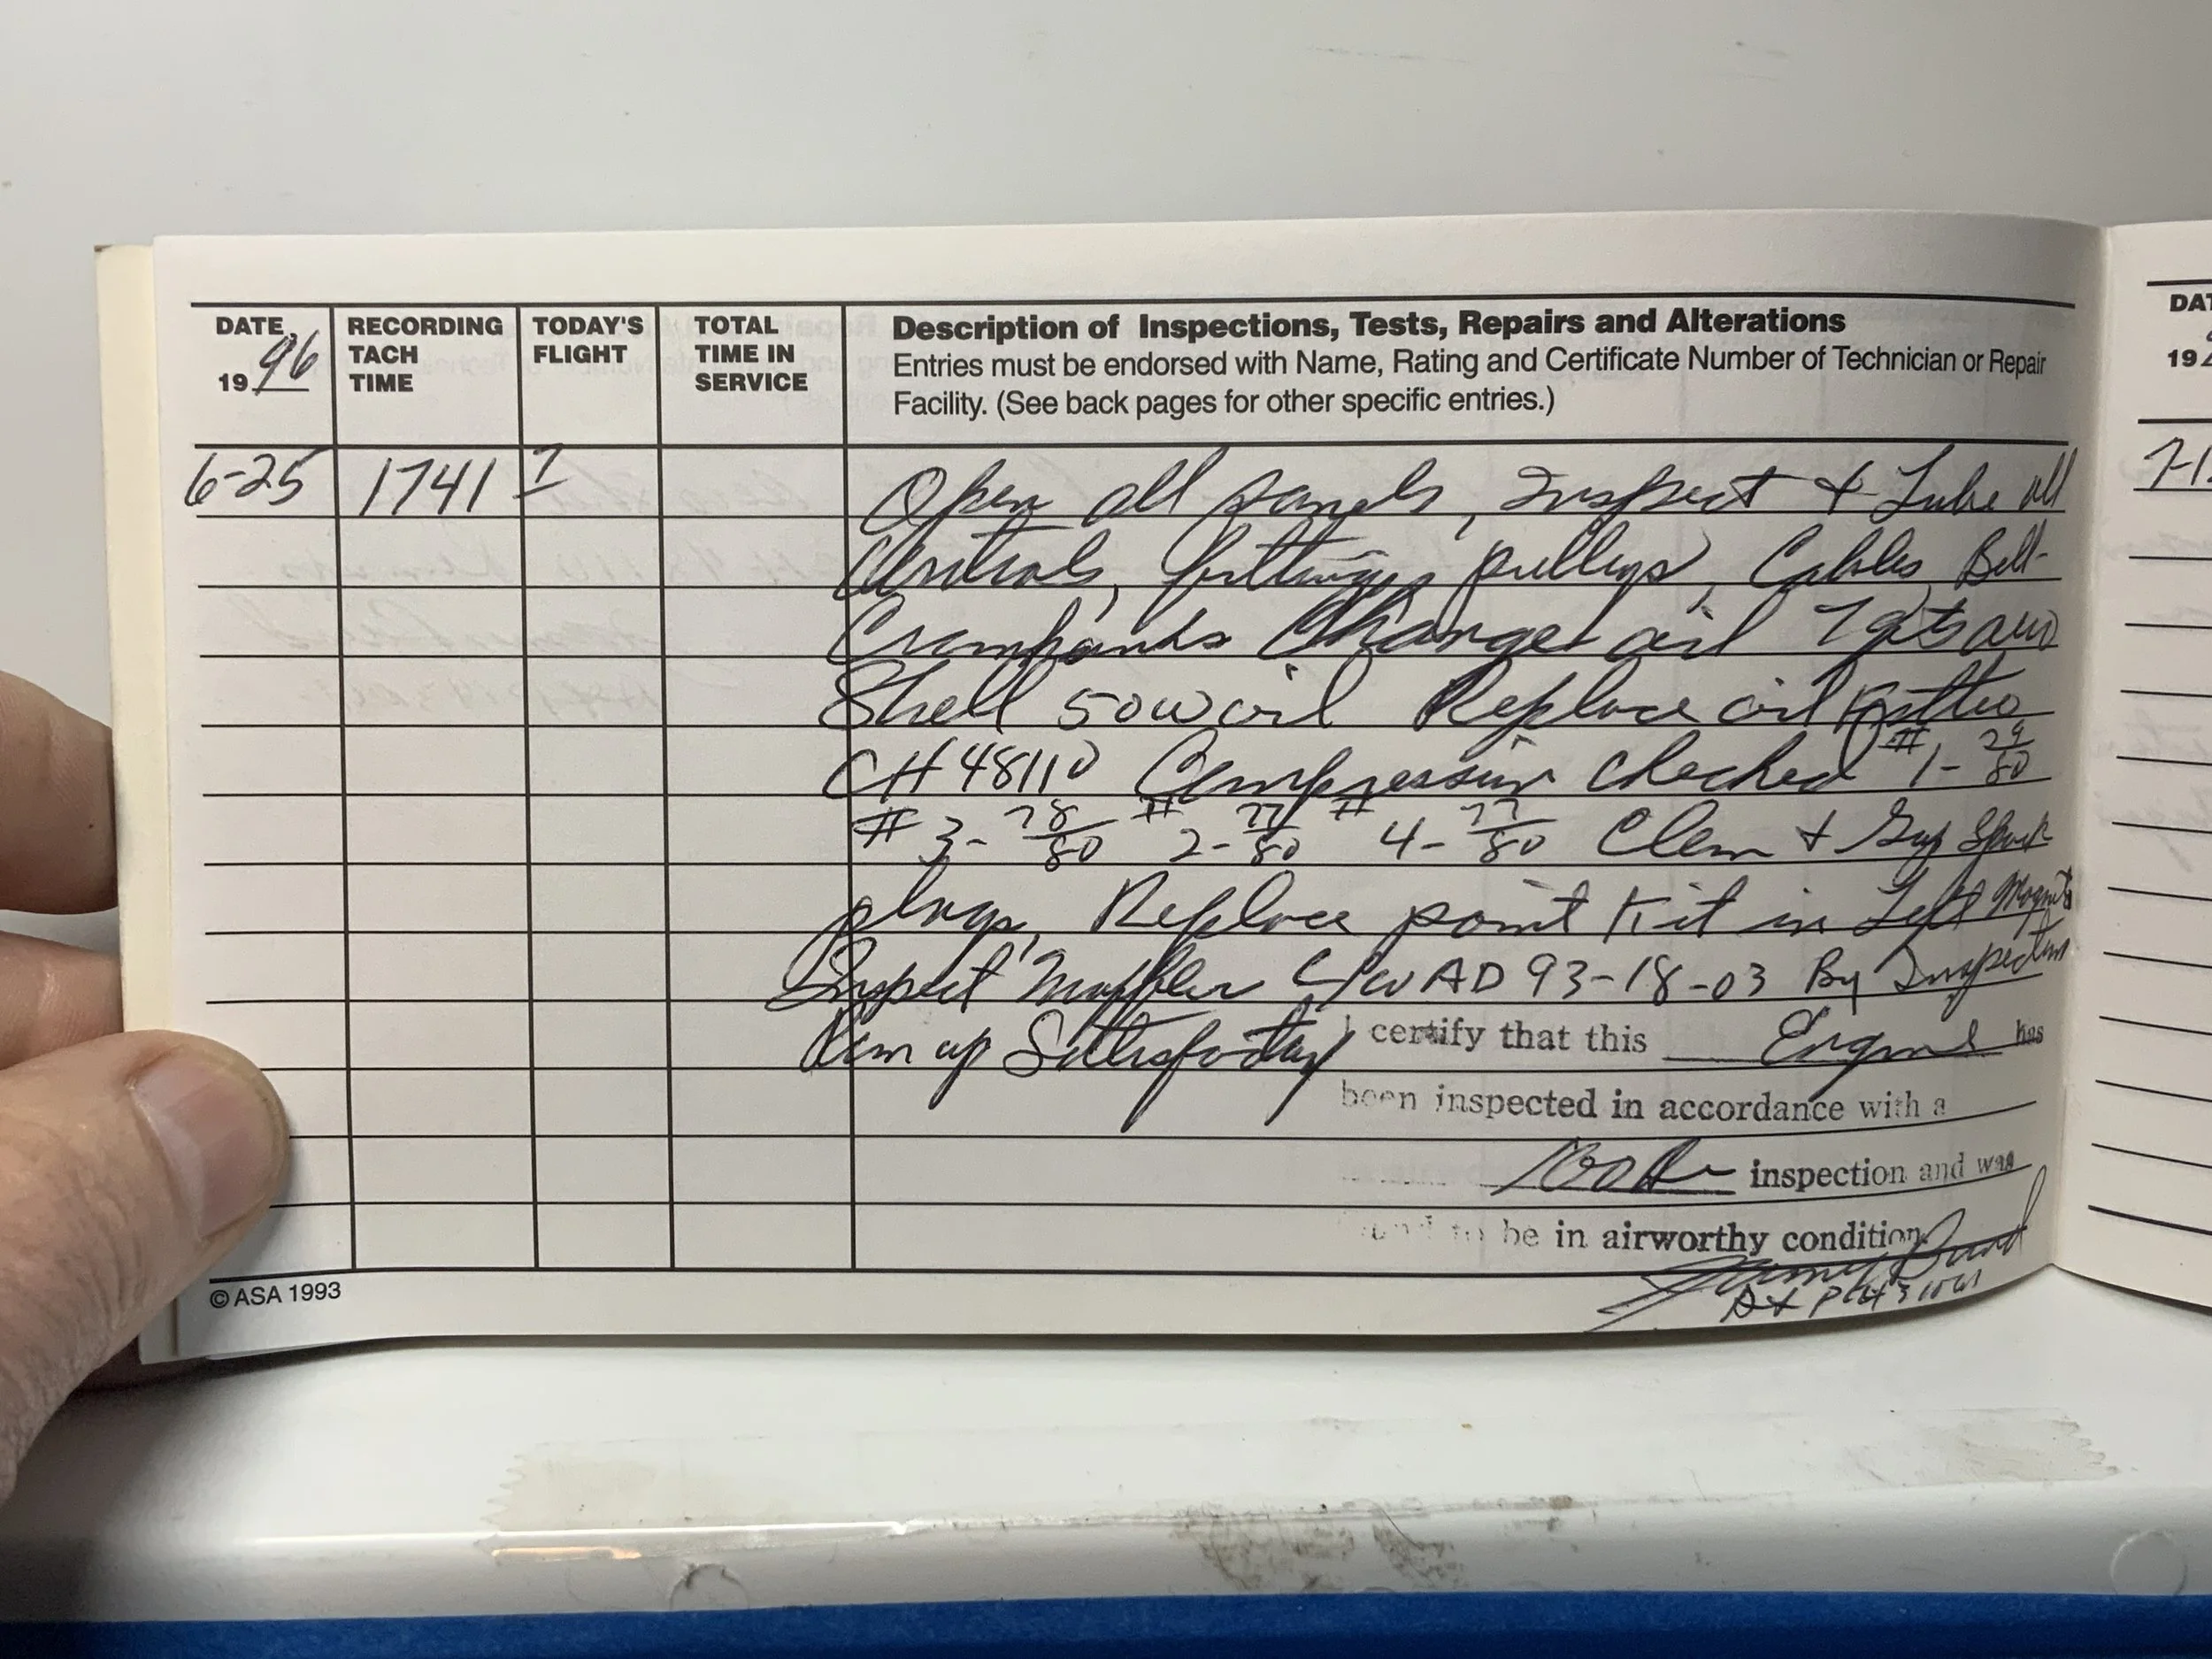 DATE
19 96
RECORDING
TACH
TIME
TODAY'S
FLIGHT
TOTAL
TIME IN
SERVICE
Description of Inspections, Tests, Repairs and Alterations
Entries must be endorsed with Name, Rating and Certificate Number of Technician or Repair
Facility. (See back pages for other specific entries.)
6-25 1741 Open all panels, Inspect & Lube all
Controls, fittings, pulleys, Cables, Bell-
Crampanks Change oil 7 qts
Shell 50W oil Replace oil
CH 48110 Compression Checked #1- /80
#3- 78/80 #2- 77/80 #4- 77/80 Clean & Gap Spark
plugs, Replace point Kit in Left Magneto
Inspect Muffler C/W AD 93-18-03 By Inspection
Run up
I certify that this Engine has
been inspected in accordance with a
100 Hr inspection and was
found to be in airworthy condition
A & P
© ASA 1993
DAT
19
7-1